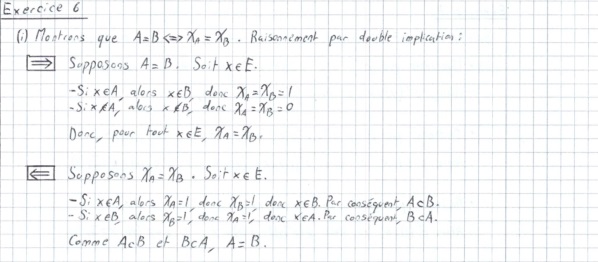 Exercice 6
(i) Montrons que A=B <=> χ_A = χ_B. Raisonnement par double implication :
⇒ Supposons A=B. Soit x∈E.
- Si x∈A, alors x∈B, donc χ_A=χ_B=1
- Si x∉A, alors x∉B, donc χ_A=χ_B=0
Donc, pour tout x∈E, χ_A=χ_B.
⇐ Supposons χ_A=χ_B. Soit x∈E.
- Si x∈A, alors χ_A=1, donc χ_B=1, donc x∈B. Par conséquent, A⊂B.
- Si x∈B, alors χ_B=1, donc χ_A=1, donc x∈A. Par conséquent, B⊂A.
Comme A⊂B et B⊂A, A=B.